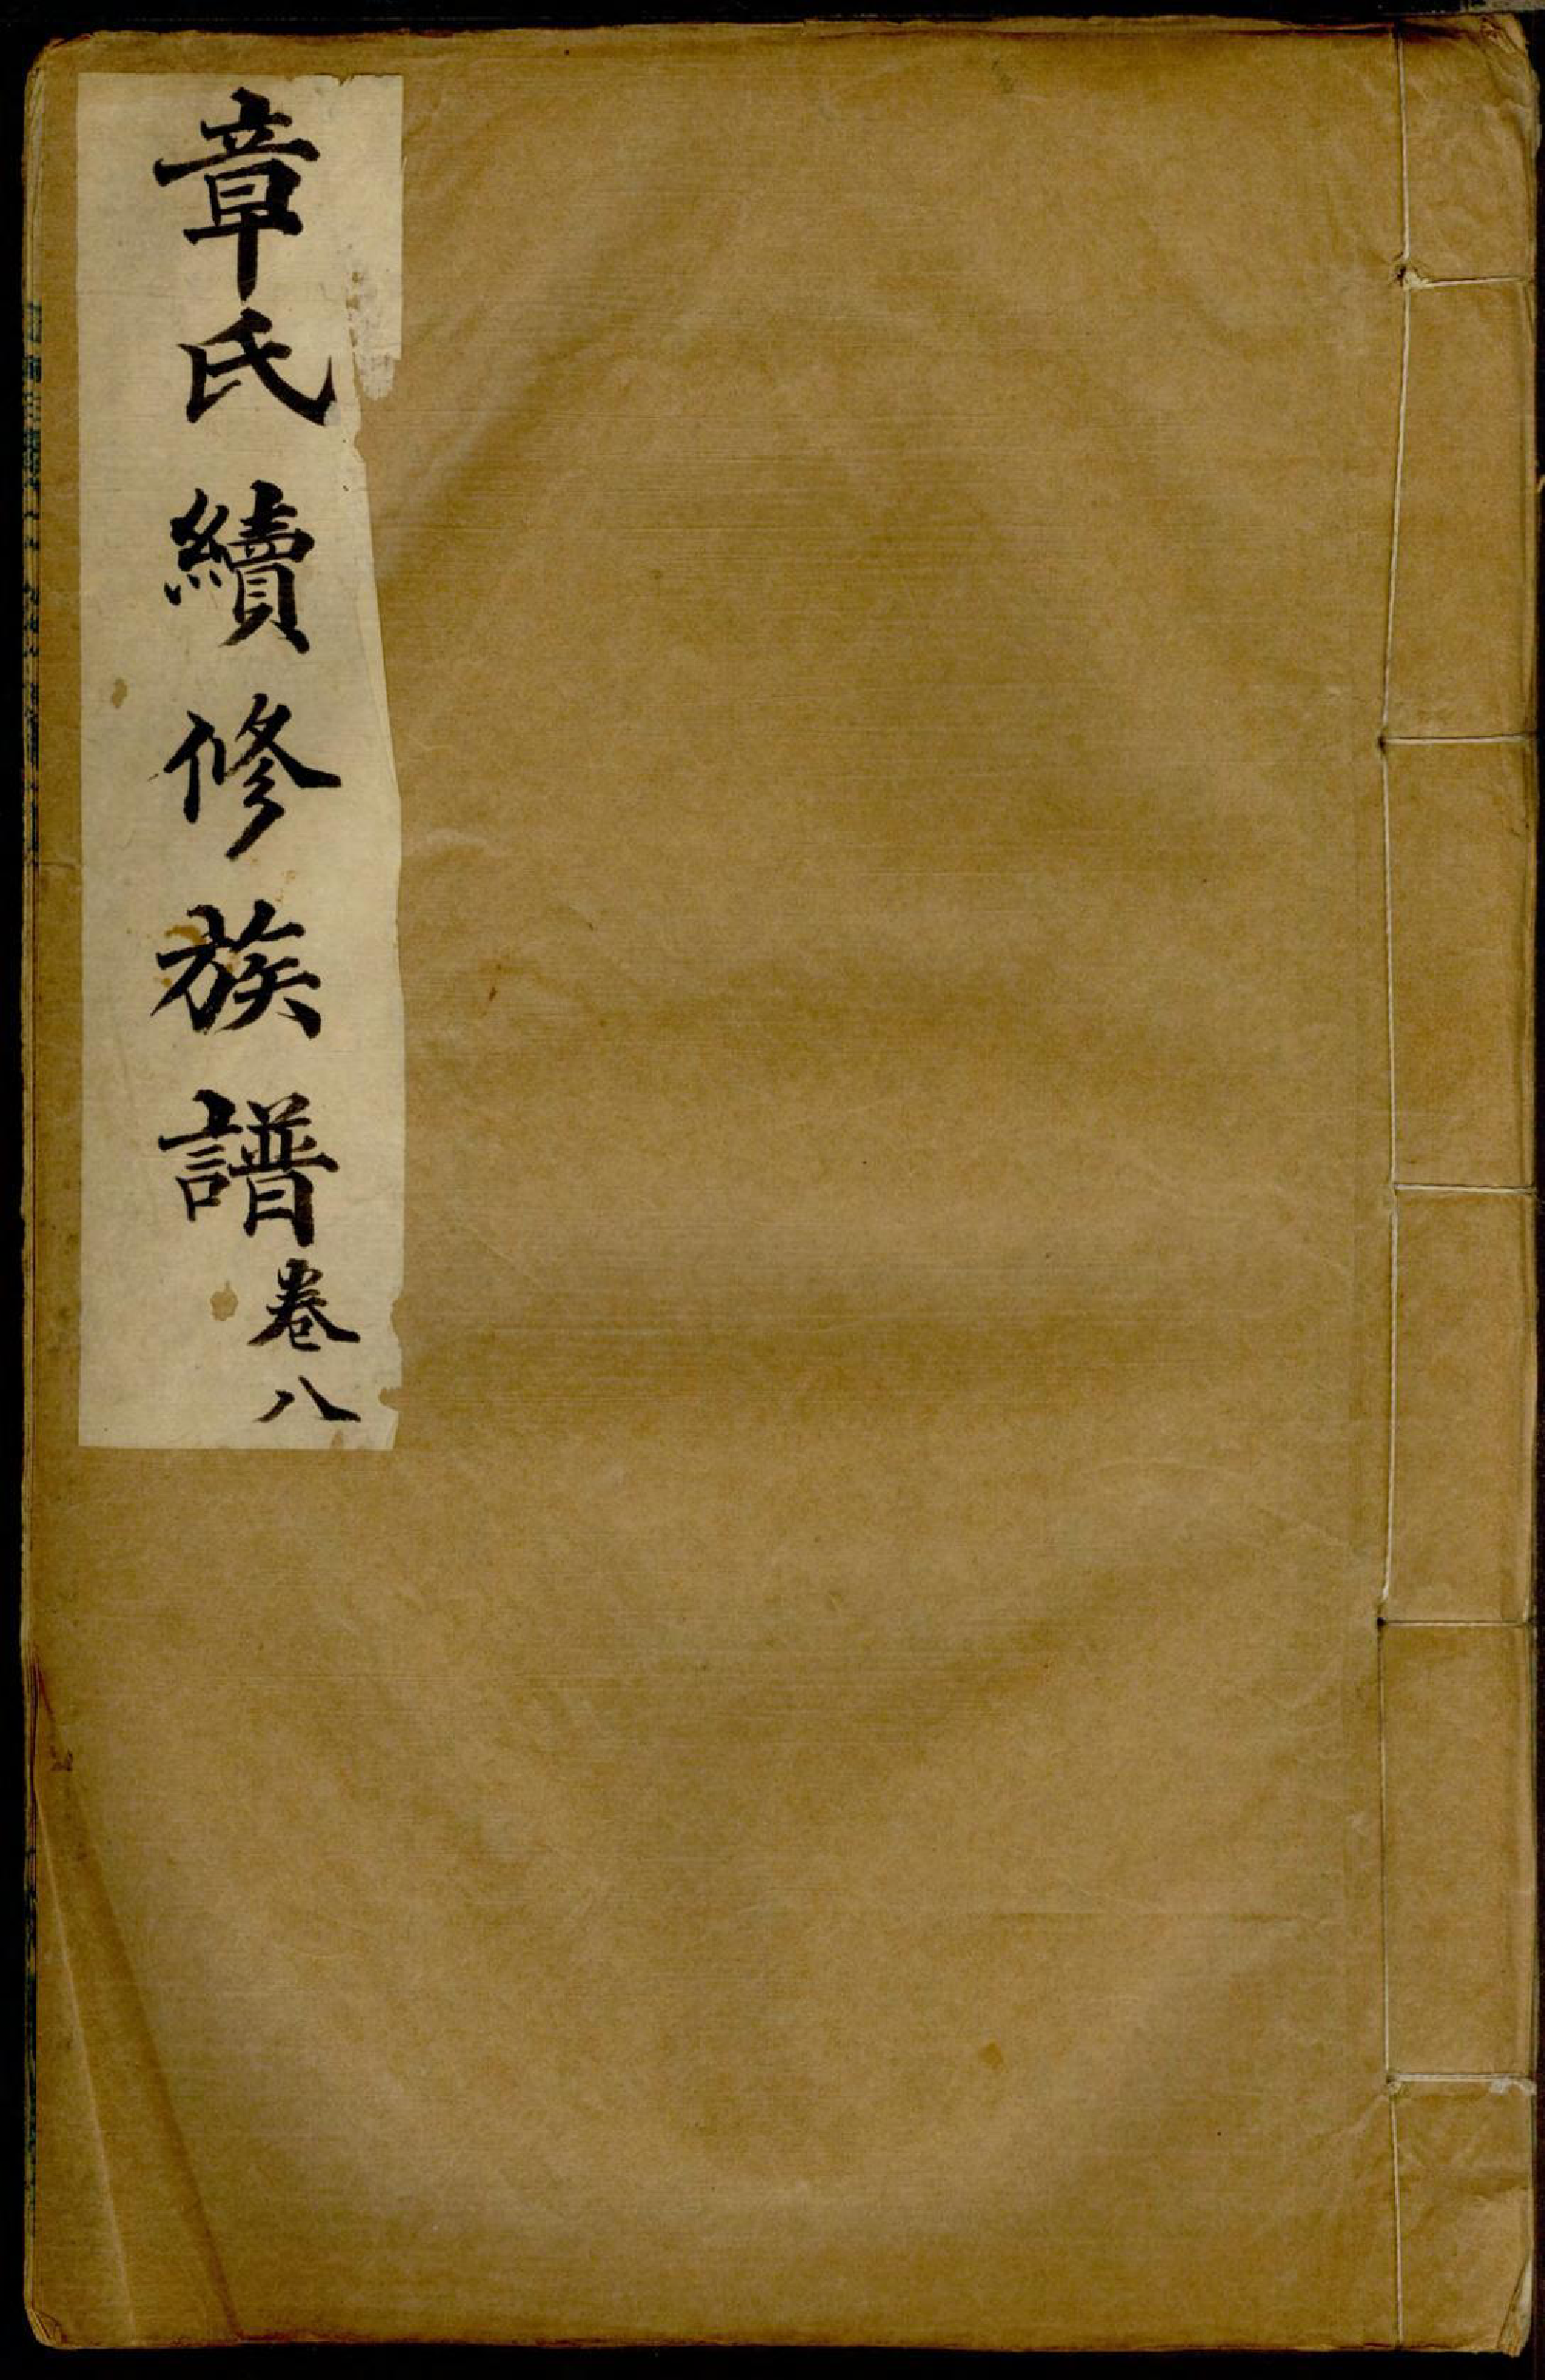 章氏續修族譜
卷八